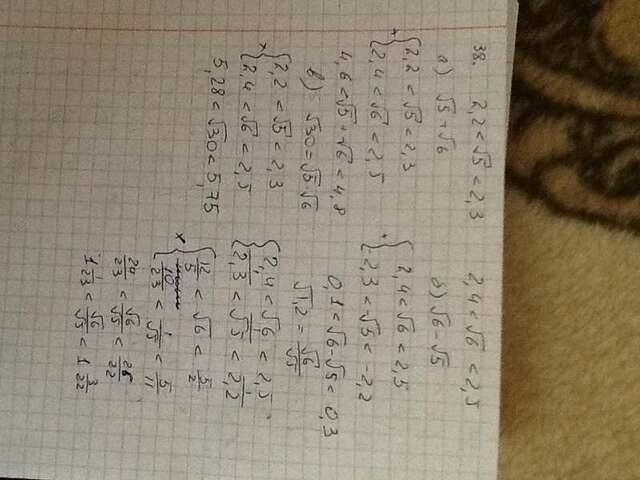 38. 2,2 < √5 < 2,3 2,4 < √6 < 2,5
а) √5 + √6
+ { 2,2 < √5 < 2,3
2,4 < √6 < 2,5
4,6 < √5 + √6 < 4,8
в) √30 = √5·√6
× { 2,2 < √5 < 2,3
2,4 < √6 < 2,5
5,28 < √30 < 5,75
б) √6 - √5
+ { 2,4 < √6 < 2,5
-2,3 < √5 < -2,2
0,1 < √6 - √5 < 0,3
√1,2 = √6/√5
{ 2,4 < √6 < 2,5
1/2,3 < 1/√5 < 1/2,2
× { 12/5 < √6 < 5/2
10/23 < 1/√5 < 5/11
24/23 < √6/√5 < 25/22
1 1/23 < √6/√5 < 1 3/22